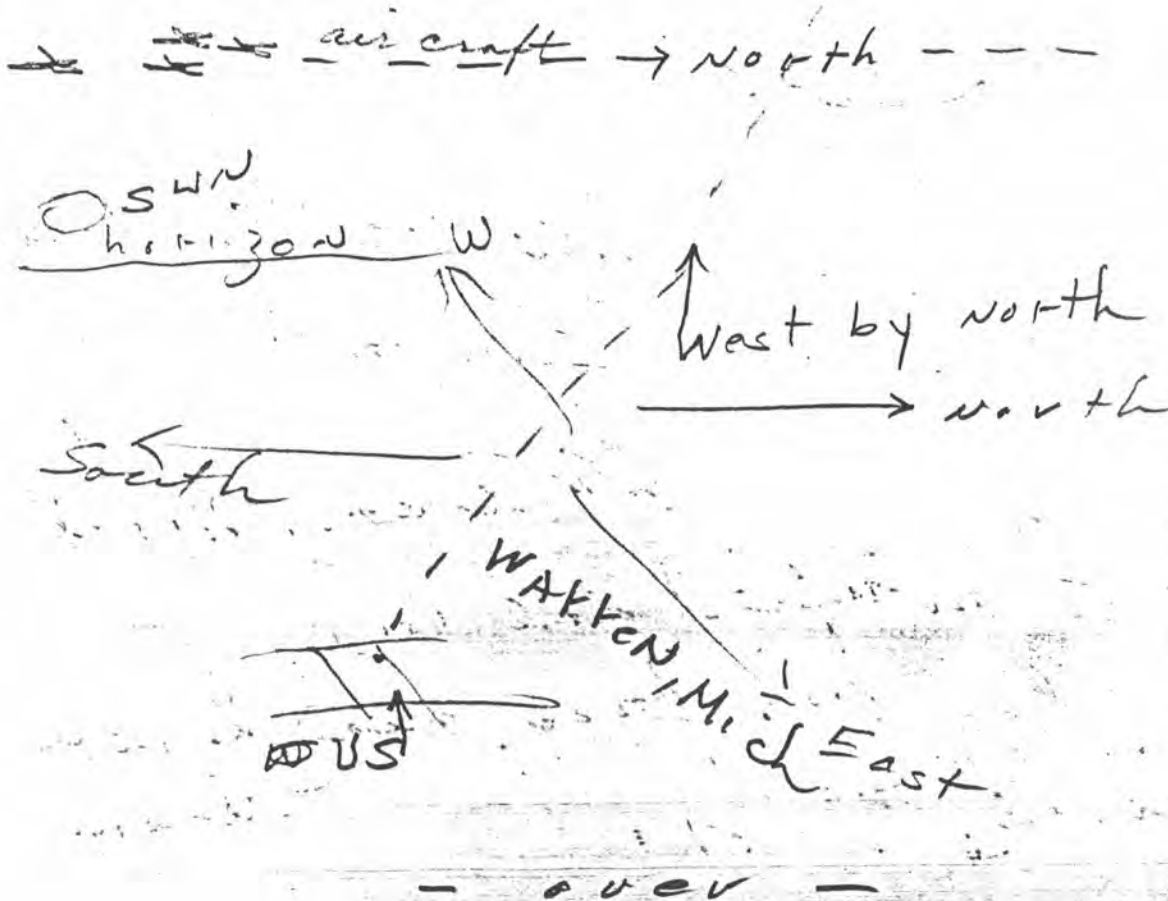 air craft → North
SUN
horizon W
West by North
north
South
WARREN, Mich
East
US
- over -